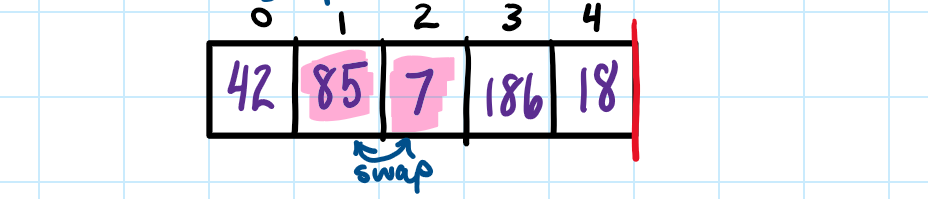 0 1 2 3 4
42 85 7 186 18
swap